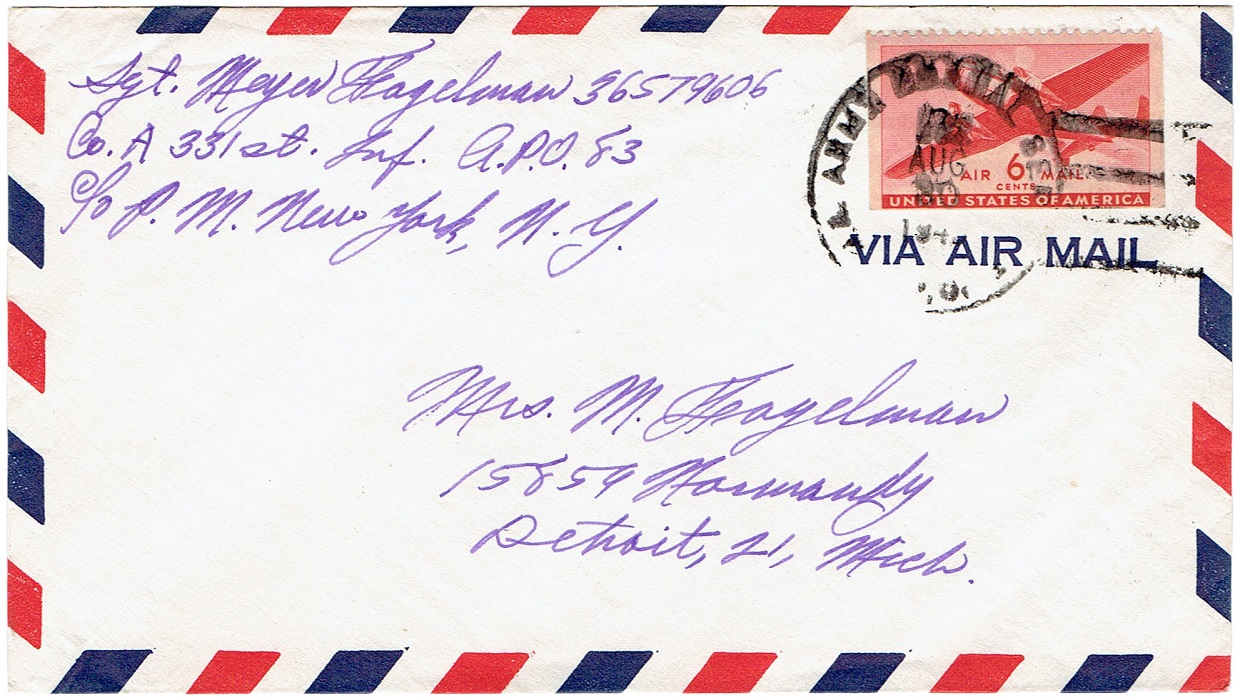 Sgt. Meyer Fagelman 36579606
Co. A 331st. Inf. A.P.O. 83
c/o P. M. New York, N. Y.
ARMY
AUG
AIR 6 MAIL
CENTS
UNITED STATES OF AMERICA
VIA AIR MAIL
Mrs. M. Fagelman
15859 Normandy
Detroit, 21, Mich.